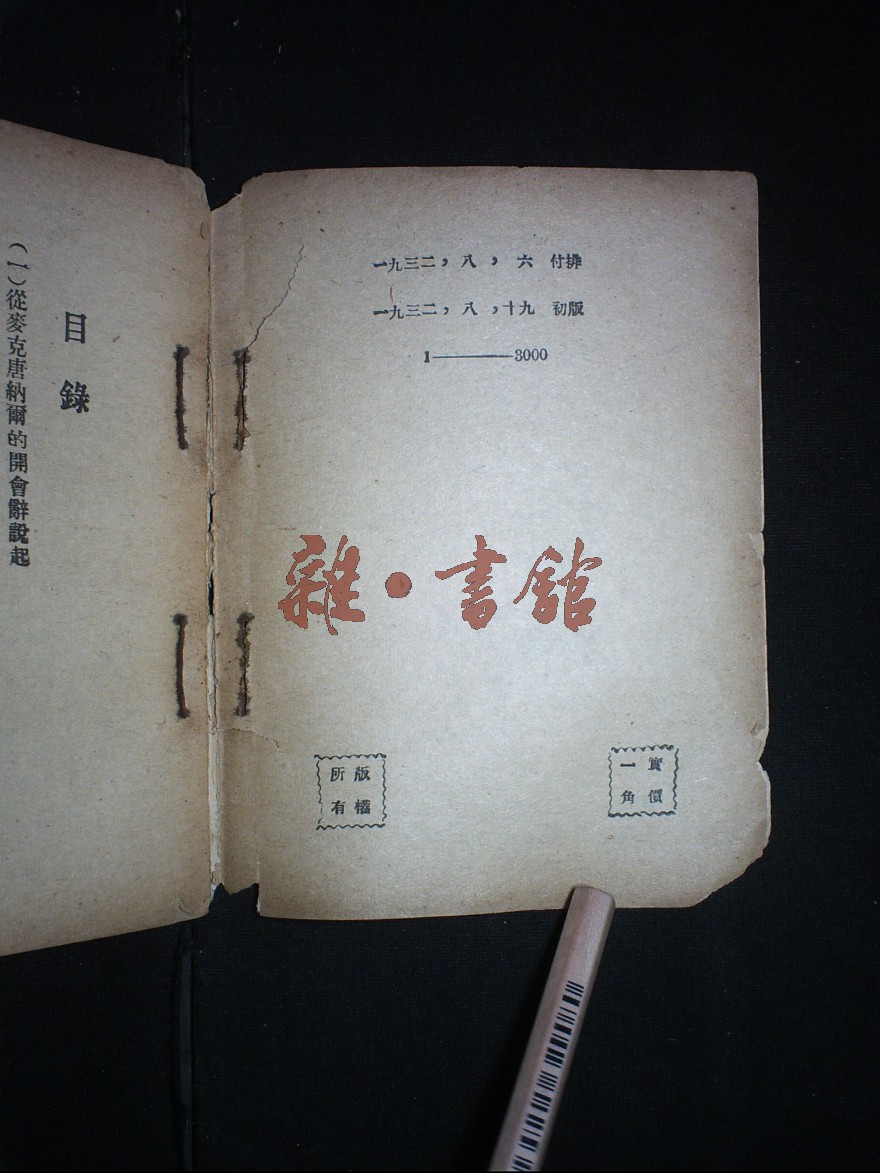 一九三二，八，六 付排
一九三二，八，十九 初版
1——3000
雜·書館
實價
一角
版權
所有
目錄
(一)從麥克唐納爾的開會辭說起